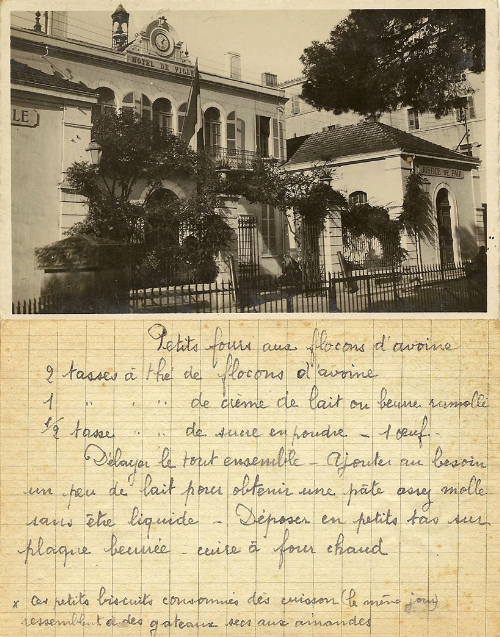 HÔTEL DE VILLE
LLE
JUSTICE DE PAIX
Petits fours aux flocons d'avoine
2 tasses à thé de flocons d'avoine
1 " " " de crème de lait ou beurre ramolli
1/2 tasse " " de sucre en poudre - 1 œuf -
Délayer le tout ensemble - Ajouter au besoin
un peu de lait pour obtenir une pâte assez molle
sans être liquide - Déposer en petits tas sur
plaque beurrée - cuire à four chaud
x Ces petits biscuits consommés dès cuisson (le même jour)
ressemblent à des gateaux secs aux amandes